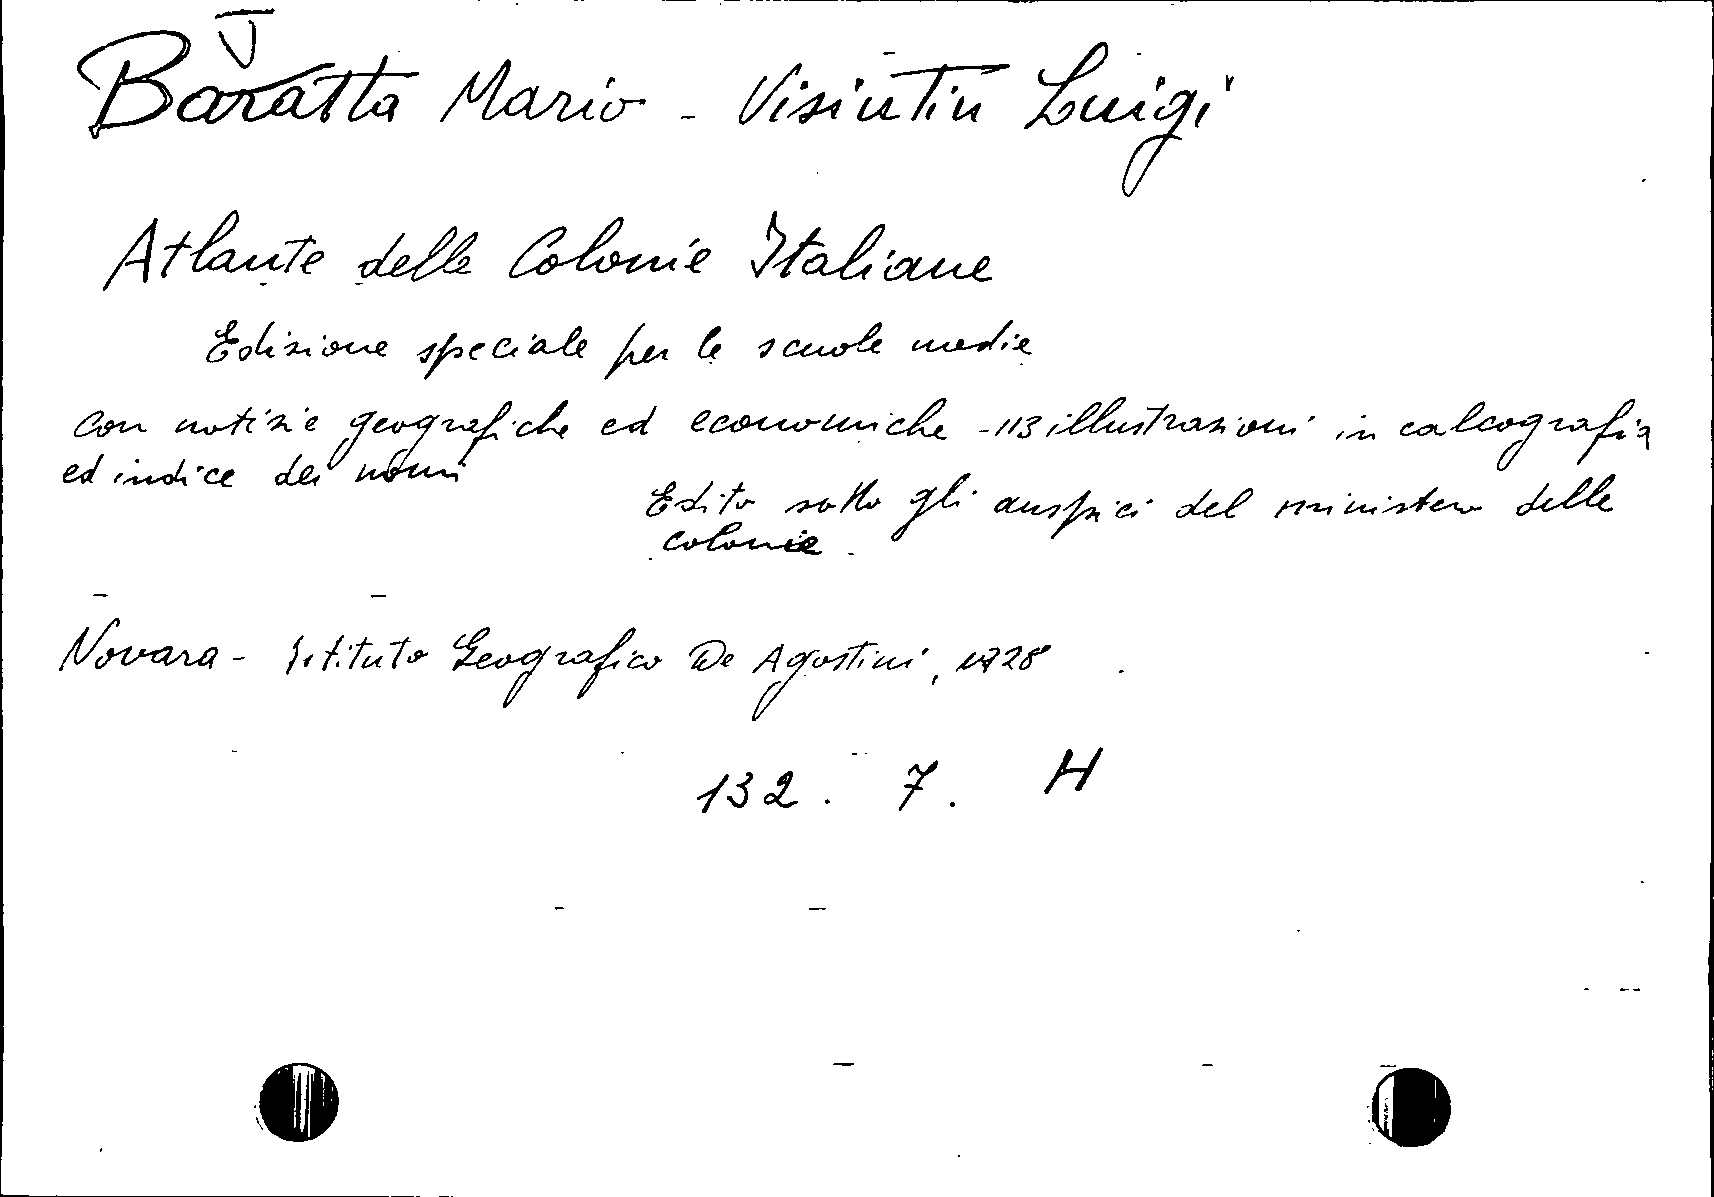 Baratta Mario - Visintin Luigi
Atlante delle Colonie Italiane
Edizione speciale per le scuole medie
con notizie geografiche ed economiche - 113 illustrazioni in calcografia
ed indice dei nomi
Edito sotto gli auspici del ministero delle
colonie.
Novara - Istituto Geografico De Agostini, 1928
132. 7. H